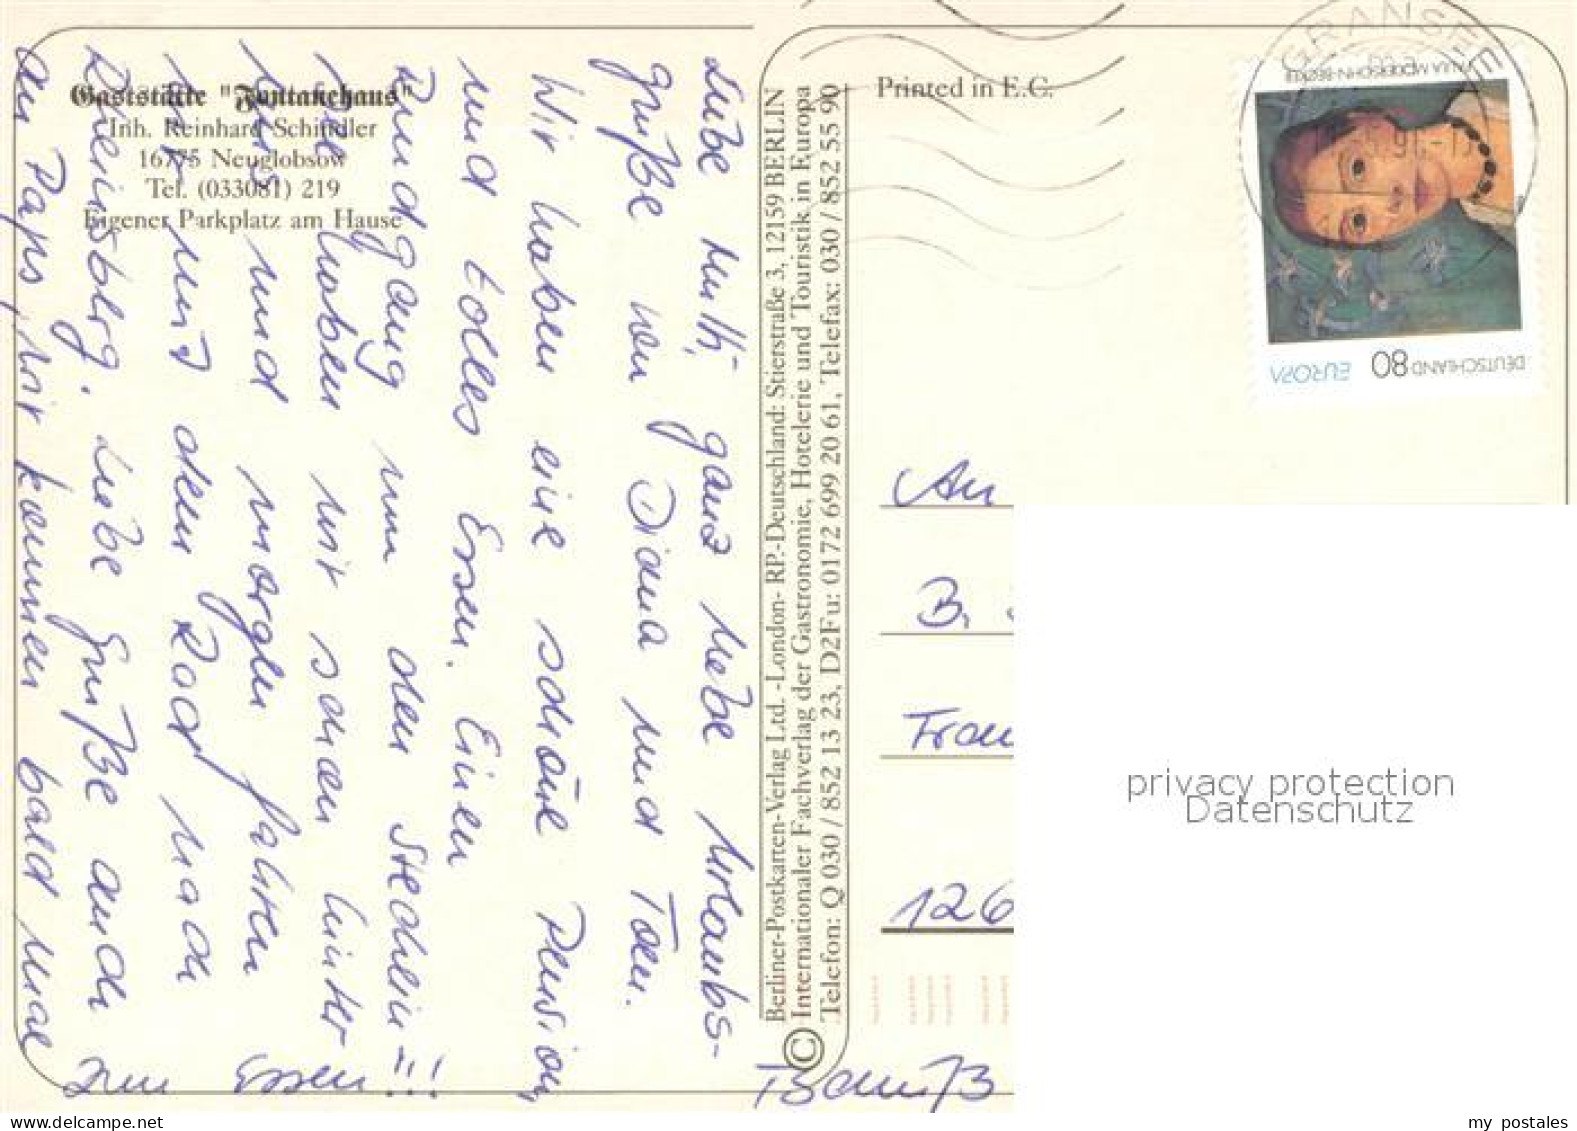 Gaststätte "Fontanehaus"
Inh. Reinhard Schindler
16775 Neuglobsow
Tel. (033081) 219
Eigener Parkplatz am Hause
Liebe Mutti, ganz liebe Urlaubs-
grüße von Diana und Toen.
Wir haben eine schöne Pension,
und tolles Essen. Einen
Rundgang um den Stechlin!!!
See haben wir schon hinter
uns und morgen fahren
wir mit dem Rad nach
Rheinsberg. Liebe Grüße auch
an Paps, wir kommen bald mal
zum Essen
Tschüß
Berliner-Postkarten-Verlag Ltd. -London- RP.-Deutschland: Stierstraße 3, 12159 BERLIN
© Internationaler Fachverlag der Gastronomie, Hotelerie und Touristik in Europa
Telefon: Q 030 / 852 13 23, D2Fu: 0172 699 20 61, Telefax: 030 / 852 55 90
Printed in E.G.
GRANSEE
PAULA MODERSOHN-BECKER
DEUTSCHLAND 80 EUROPA
An
B.
Frau
126
privacy protection
Datenschutz
my postales